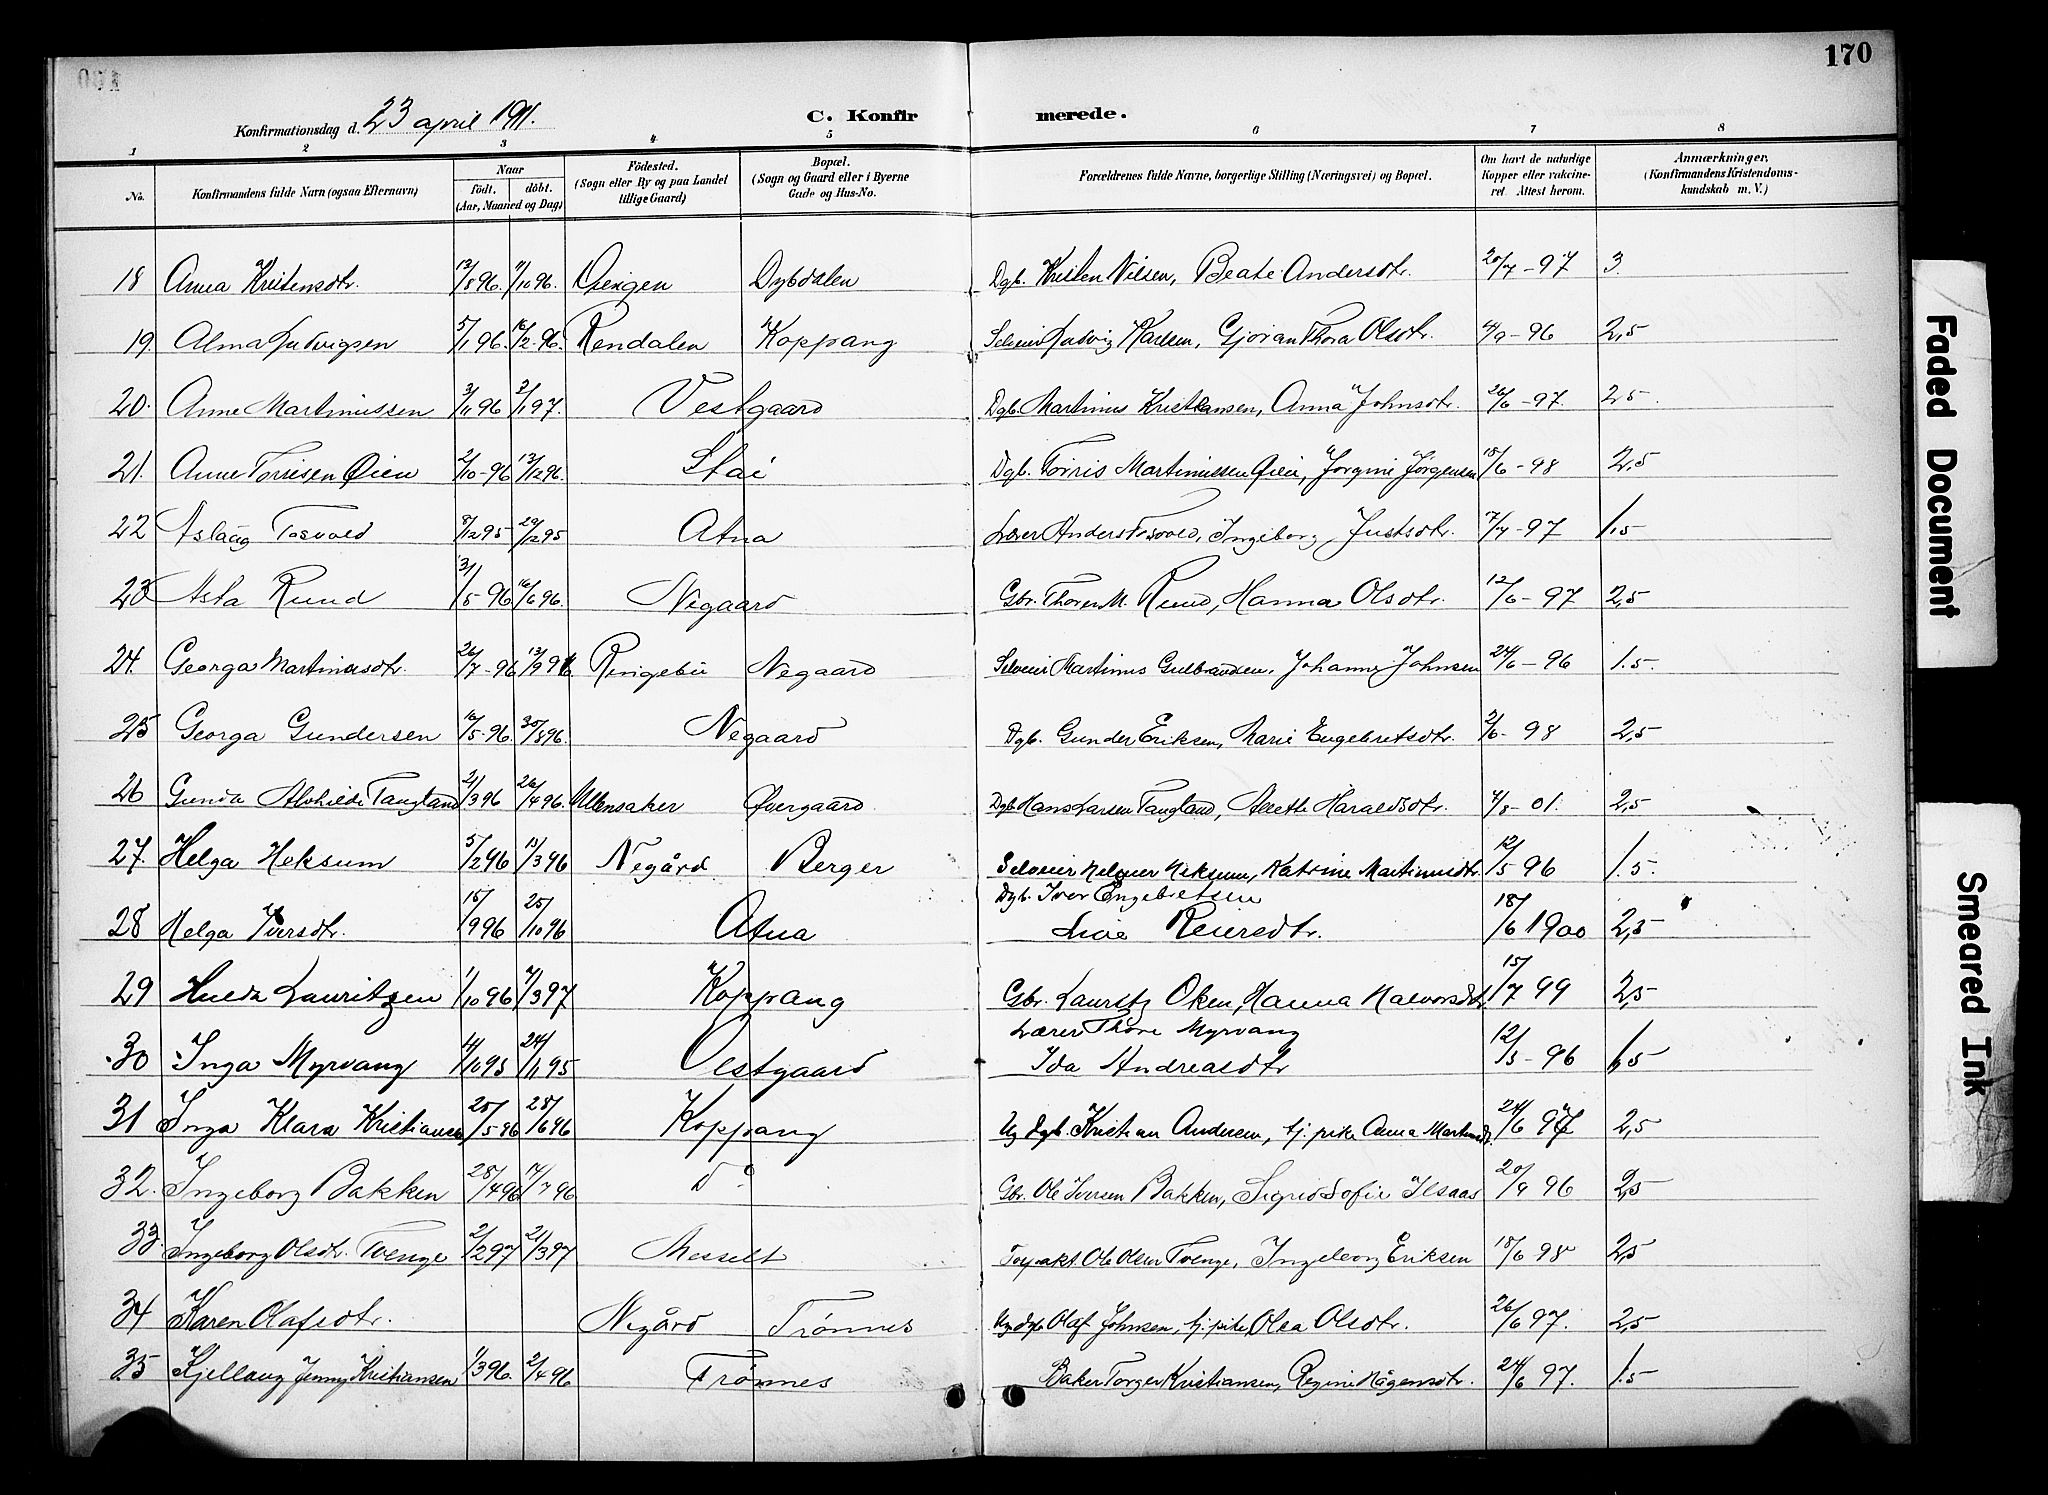 170
Konfirmationsdag d. 23 april 1911.
C. Konfirmerede.
1 2 3 4 5 6 7 8
No. Konfirmandens fulde Navn (ogsaa Efternavn) Naar födt. döbt. (Aar, Maaned og Dag) Födested. (Sogn eller By og paa Landet tillige Gaard) Bopæl. (Sogn og Gaard eller i Byerne Gade og Hus-No. Forældrenes fulde Navne, borgerlige Stilling (Næringsvei) og Bopæl. Om havt de naturlige Kopper eller vakcineret. Attest herom. Anmærkninger. (Konfirmandens Kristendomskundskab m. V.)
18 Anna Kristensdtr. 13/8 96. 11/10 96. Dybdalen Dgb. Kristen Nilsen, Beate Andersdtr. 20/7-97 3
19. Alma Ludvigsen 5/1 96. 16/2 96. Rendalen Koppang Selveier Ludvig Karlsen, Gjoran Thora Olsdtr. 4/9-96 2,5
20. Anne Martinussen 3/11 96 3/1 97. Vestgaard Dgb. Martinus Kristiansen, Anna Johnsdtr. 26/6-97. 2,5.
21. Anne Torrisen Øien 2/10-96 13/12 96. Stai Dgb. Torris Martinussen Øien, Jørgine Jørgensen 15/6-98 2,5
22 Aslaug Tosvold 8/12 95 29/12 95 Atna Lærer Anders Tosvold, Ingeborg Justsdtr. 7/7-97 1.5
23 Asta Rund 31/5 96 16/6 96. Negaard Gbr. Thorer M. Rund, Hanna Olsdtr. 12/6-97 2,5
24. Georga Martinusdtr. 26/7-96 13/9 96. Ringebu Negaard Selveier Martinus Gulbrandsen, Johanne Johnsen 24/6-96 1.5.
25 Georga Gundersen 16/5-96 30/8 96. Negaard Dgb. Gunder Eriksen, Marie Engebretsdtr. 2/6-98 2,5
26 Gunda Alvhilde Tangland 21/3 96 26/4 96. Ullensaker Øvergaard Dgb. Hans Larsen Tangland, Alette Haraldsdtr. 4/8-01. 2,5
27. Helga Heksum 5/2 96 15/3 96 Negård Berger Selveier Helmer Heksum, Katrine Martinusdtr. 12/5 96 1.5.
28 Helga Iversdtr. 15/9 96 25/10 96 Atna Dgb. Iver Engebretsen
Live Reiersdtr. 18/6 1900 2,5
29 Hulda Lauritzen 1/10 96 7/3 97 Koppang Gbr. Lauritz Oken, Hanna Halvorsdtr 15/7 99 2,5
30 Inga Myrvang 14/10 95 24/11 95 Vestgaard Lærer Thore Myrvang
Ida Andreasdtr 12/5-96 1,5
31 Inga Klara Kristiansen 25/5 96 28/6 96 Koppang Ug. Dgb. Kristian Andersen, tj. pike Anna Martinsdtr. 24/6 97 2,5
32. Ingeborg Bakken 28/4 96 14/7 96 Do Gbr. Ole Iversen Bakken, Sigrid Sofie Ilsaas 20/9 96 2,5
33. Ingeborg Olsdtr. Tvenge 2/2 97 21/3 97 Messelt Forpakt. Ole Olsen Tvenge, Ingeborg Eriksen 18/6 98 2,5
34 Karen Olafsdtr. Negård Trønnes Ug. dgb. Olaf Johnsen, tj. pike, Olea Olsdtr. 26/6 97. 2,5
35 Kjellaug Jenny Kristiansen 1/3 96. 2/4 96 Trønnes Baker Torger Kristiansen, Regine Hågensdtr. 24/6 97. 1.5
Faded Document
Smeared Ink